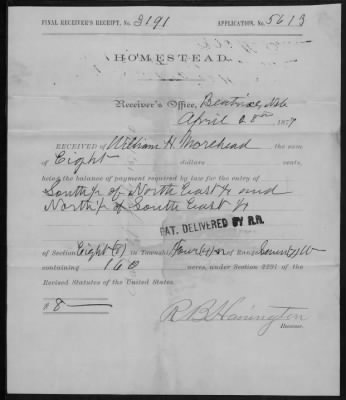 FINAL RECEIVER'S RECEIPT, No. 3191 APPLICATION, No. 5613
HOMESTEAD.
Receiver's Office, Beatrice, Neb
April 28th 1877
RECEIVED of William H. Morehead the sum
of Eight dollars cents,
being the balance of payment required by law for the entry of
South ½ of North East ¼ and
North ½ of South East ¼
PAT. DELIVERED BY R.R.
of Section Eight (8) in Township of Range
containing 160 acres, under Section 2291 of the
Revised Statutes of the United States.
$ 8
R. B. Harrington
Receiver.